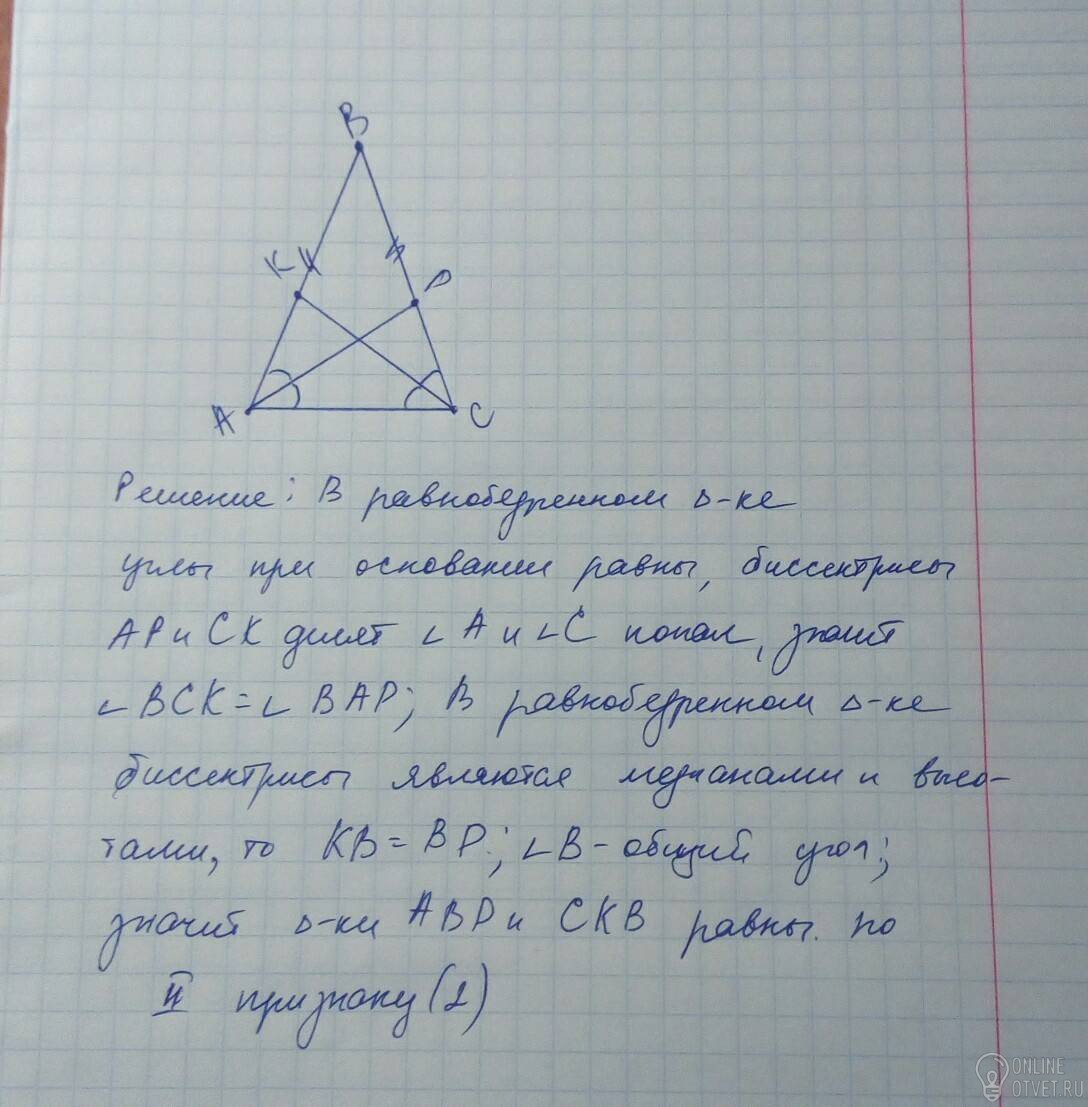 В
К
Р
А
С
Решение: В равнобедренном Δ-ке
углы при основании равны, биссектрисы
АР и СК делят ∠А и ∠С попал, значит
∠ВСК=∠ВАР; В равнобедренном Δ-ке
биссектрисы являются медианами и высо-
тами, то КВ=ВР; ∠В-общий угол;
значит Δ-ки АВР и СКВ равны. по
II признаку (2)
ONLINE
OTVET.RU